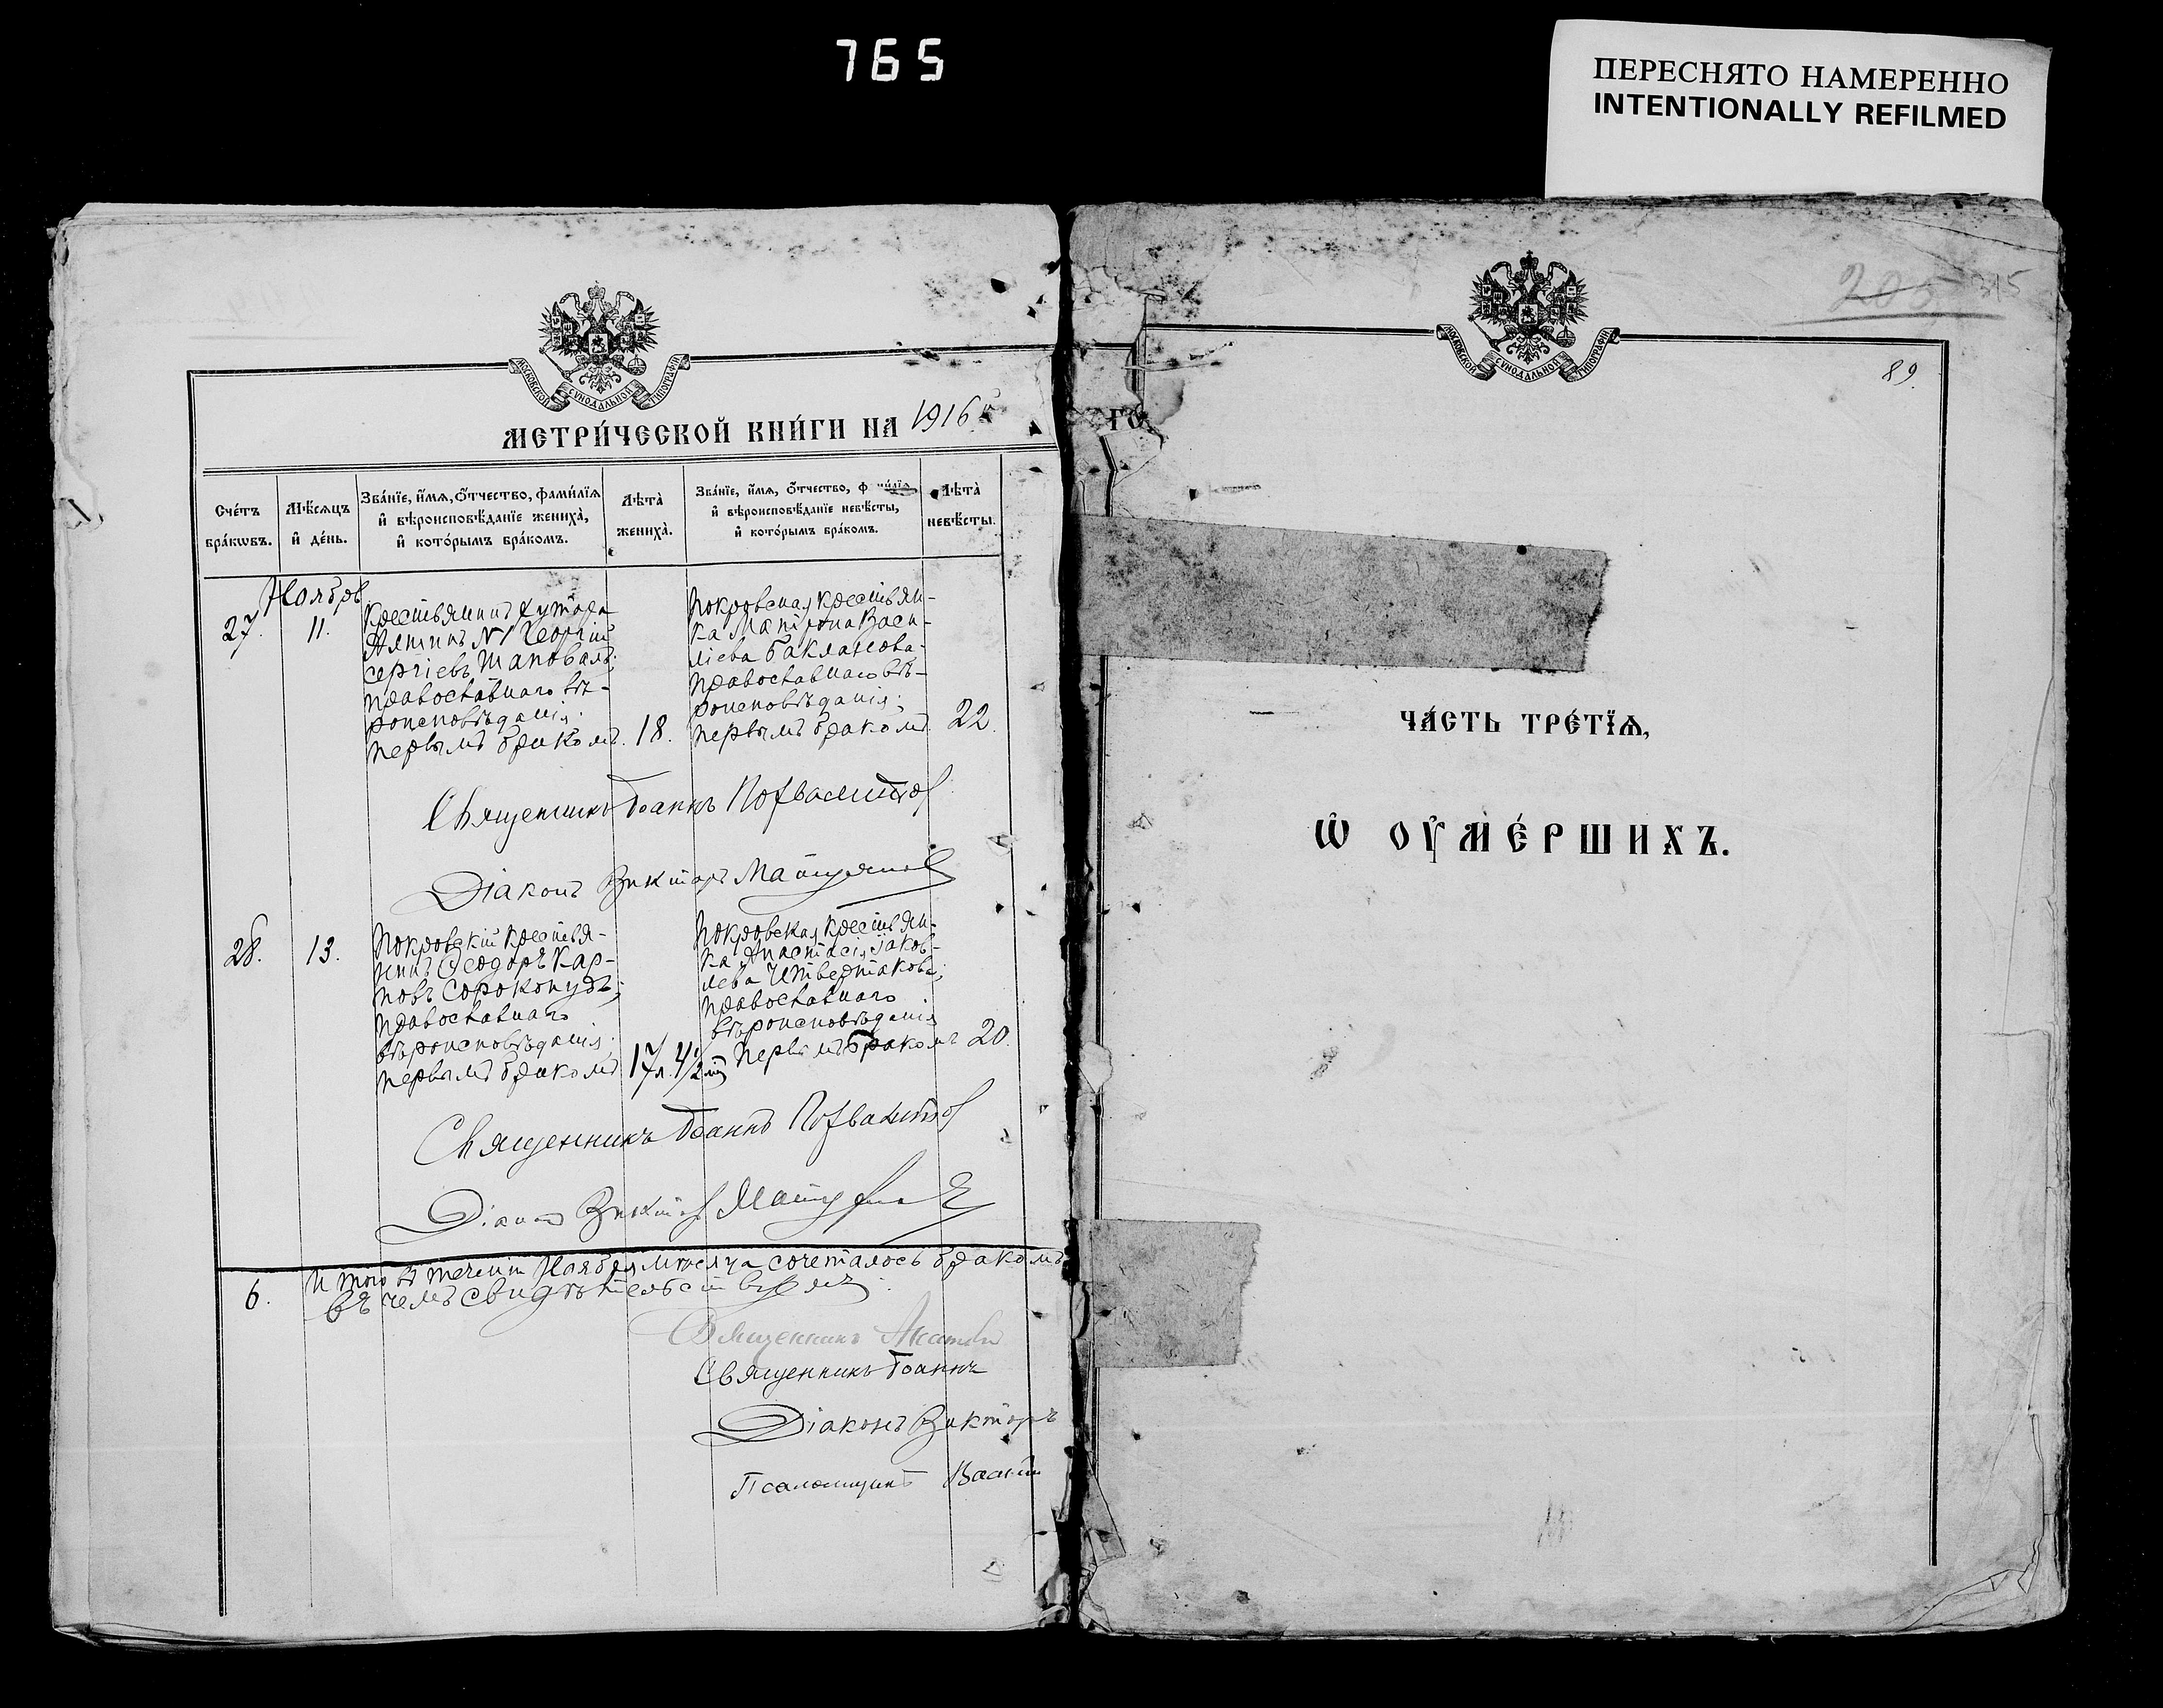 765
ПЕРЕСНЯТО НАМЕРЕННО
INTENTIONALLY REFILMED
МОСКОВСКОЙ СѴНОДАЛЬНОЙ ТИПОГРАФІИ
МЕТРИ́ЧЕСКОЙ КНИ́ГИ НА 1916й
Сче́тъ бра́кѡвъ.
Мѣ́сяцъ и҆ де́нь.
Зва́нїе, и҆́мѧ, ѻ҆́тчество, фами́лїѧ
и҆ вѣроисповѣ́данїе жениха̀,
и҆ кото́рымъ бра́комъ.
Лѣта̀ жениха̀.
Зва́нїе, и҆́мѧ, ѻ҆́тчество,
и҆ вѣроисповѣ́данїе невѣ́сты,
и҆ кото́рымъ бра́комъ.
Лѣта̀ невѣ́сты.
Ноябрь
27.
11.
Крестьянинъ хутора
№ 1 Георгій
Сергіевъ Шаповалъ;
православнаго вѣ-
роисповѣданія;
первымъ бракомъ.
18.
Покровская крестьян-
ка Матрона Васи-
ліева Бакланова;
православнаго вѣ-
роисповѣданія;
первымъ бракомъ.
22.
Священникъ Іоаннъ
Діаконъ Викторъ
28.
13.
Покровскій крестья-
нинъ Ѳеодоръ Кар-
повъ Сорокопудъ;
православнаго
вѣроисповѣданія;
первымъ бракомъ
17 л. 4½ м.
Покровская крестьян-
ка Анастасія Іаков-
лева Четвертакова;
православнаго
вѣроисповѣданія
первымъ бракомъ
20.
Священникъ Іоаннъ
Діаконъ Викторъ
6.
Итого въ теченіи Ноября мѣсяца сочеталось бракомъ
въ чемъ свидѣтельствуемъ
Священникъ
Священникъ Іоаннъ
Діаконъ Викторъ
Псаломщикъ Василій
МОСКОВСКОЙ СѴНОДАЛЬНОЙ ТИПОГРАФІИ
205 315
89.
ГО
ЧА́СТЬ ТРЕ́ТЇѦ,
Ѡ҆ ОУ҆МЕ́РШИХЪ.